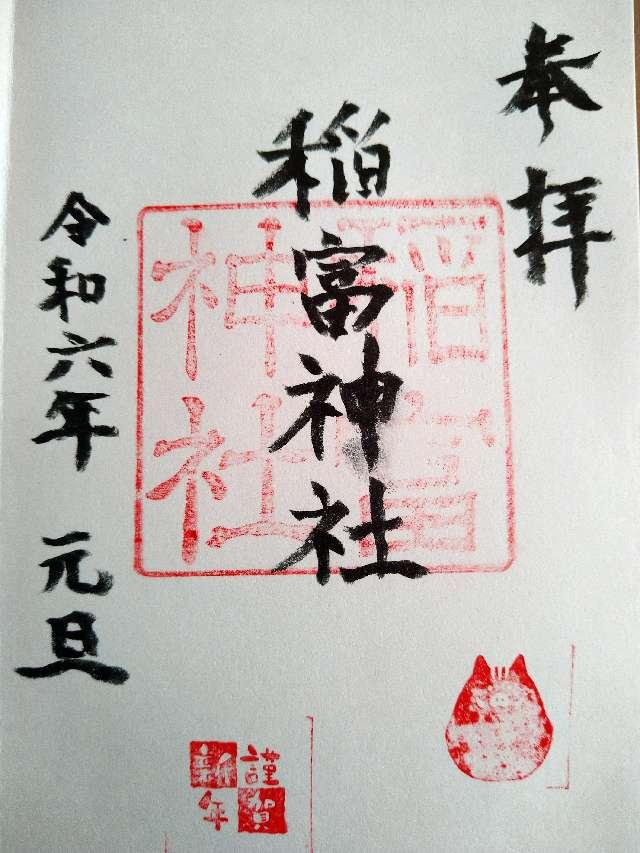 奉拝
稲富神社
稲富
神社
令和六年 元旦
謹賀
新年